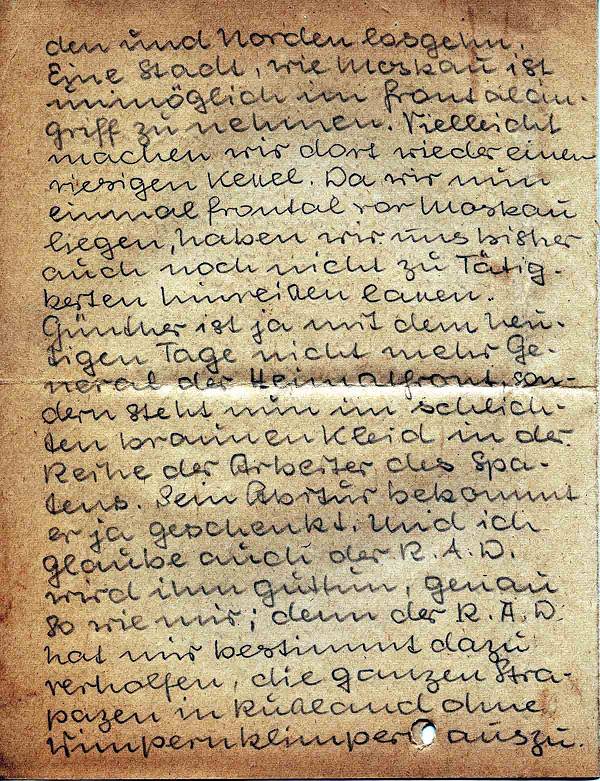 den und Norden losgehn.
Eine Stadt, wie Moskau ist
unmöglich im Frontalan-
griff zu nehmen. Vielleicht
machen wir dort wieder einen
riesigen Kessel. Da wir nun
einmal frontal vor Moskau
liegen, haben wir uns bisher
auch noch nicht zu Tätig-
keiten hinreißen lassen.
Günther ist ja mit dem heu-
tigen Tage nicht mehr Ge-
neral der Heimatfront, son-
dern steht nun im schlich-
ten braunen Kleid in der
Reihe der Arbeiter des Spa-
tens. Sein Abitur bekommt
er ja geschenkt. Und ich
glaube auch der R.A.D.
wird ihm guttun, genau
so wie mir; denn der R.A.D.
hat mir bestimmt dazu
verholfen, die ganzen Stra-
pazen in Rußland ohne
Wimpernklimpern auszu-